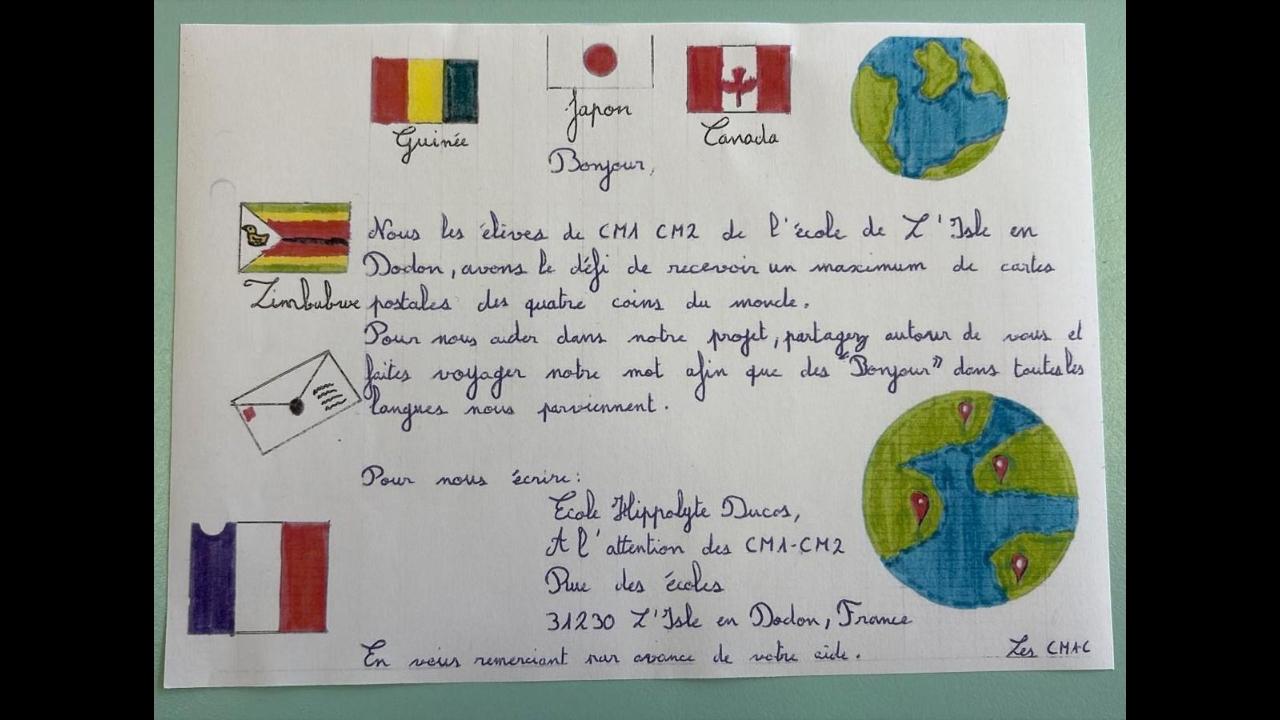 Guinée
Japon
Canada
Bonjour,
Zimbubwe
Nous les élèves de CM1 CM2 de l'école de L'Isle en
Dodon, avons le défi de recevoir un maximum de cartes
postales des quatre coins du monde.
Pour nous aider dans notre projet, partagez autour de vous et
faites voyager notre mot afin que des "Bonjour" dans toutes les
langues nous parviennent.
Pour nous écrire :
Ecole Hippolyte Ducos,
A l'attention des CM1-CM2
Rue des écoles
31230 L'Isle en Dodon, France
En vous remerciant par avance de votre aide.
Les